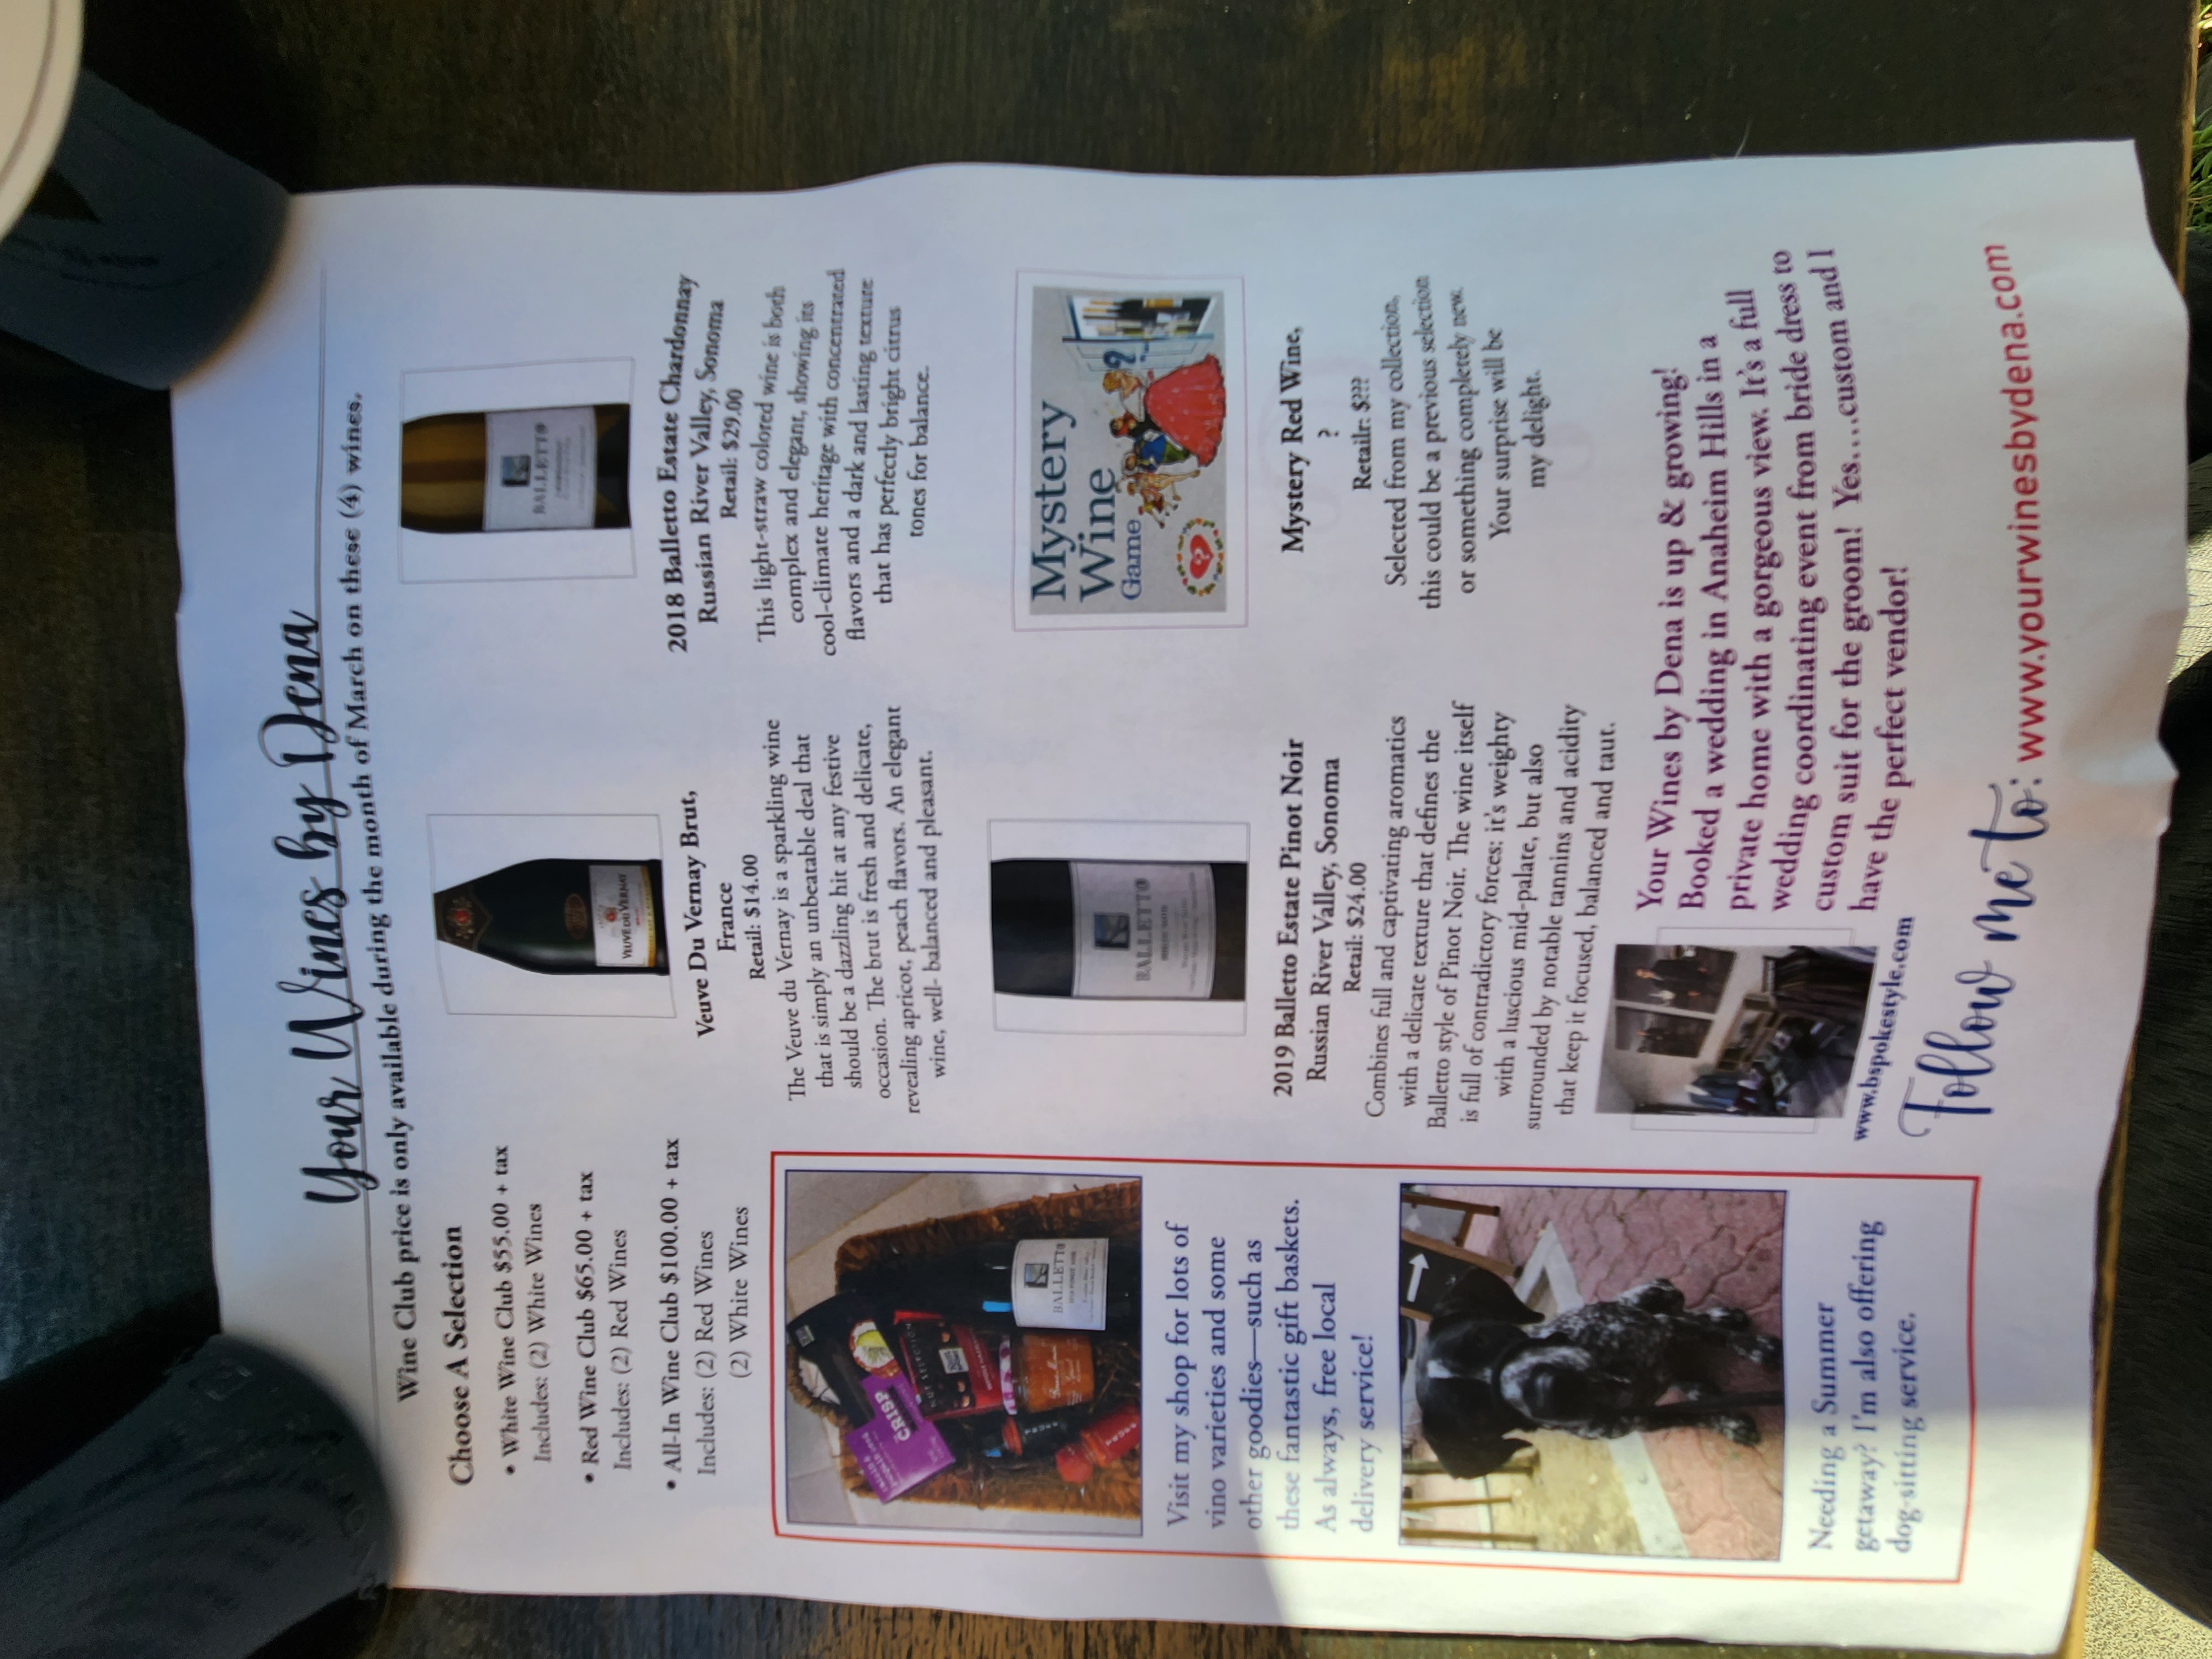 Your Wines by Dena
Wine Club price is only available during the month of March on these (4) wines.
Choose A Selection
• White Wine Club $55.00 + tax
Includes: (2) White Wines
• Red Wine Club $65.00 + tax
Includes: (2) Red Wines
• All-In Wine Club $100.00 + tax
Includes: (2) Red Wines
(2) White Wines
CRISP
BALLETTO
Visit my shop for lots of
vino varieties and some
other goodies—such as
these fantastic gift baskets.
As always, free local
delivery service!
Needing a Summer
getaway? I'm also offering
dog-sitting service.
VEUVE DU VERNAY
Veuve Du Vernay Brut,
France
Retail: $14.00
The Veuve du Vernay is a sparkling wine
that is simply an unbeatable deal that
should be a dazzling hit at any festive
occasion. The brut is fresh and delicate,
revealing apricot, peach flavors. An elegant
wine, well- balanced and pleasant.
BALLETTO
2018 Balletto Estate Chardonnay
Russian River Valley, Sonoma
Retail: $29.00
This light-straw colored wine is both
complex and elegant, showing its
cool-climate heritage with concentrated
flavors and a dark and lasting texture
that has perfectly bright citrus
tones for balance.
BALLETTO
2019 Balletto Estate Pinot Noir
Russian River Valley, Sonoma
Retail: $24.00
Combines full and captivating aromatics
with a delicate texture that defines the
Balletto style of Pinot Noir. The wine itself
is full of contradictory forces: it's weighty
with a luscious mid-palate, but also
surrounded by notable tannins and acidity
that keep it focused, balanced and taut.
Mystery
Wine
Game
?
Mystery Red Wine,
?
Retailr: $???
Selected from my collection,
this could be a previous selection
or something completely new.
Your surprise will be
my delight.
www.bspokestyle.com
Your Wines by Dena is up & growing!
Booked a wedding in Anaheim Hills in a
private home with a gorgeous view. It's a full
wedding coordinating event from bride dress to
custom suit for the groom! Yes....custom and I
have the perfect vendor!
Follow me to: www.yourwinesbydena.com